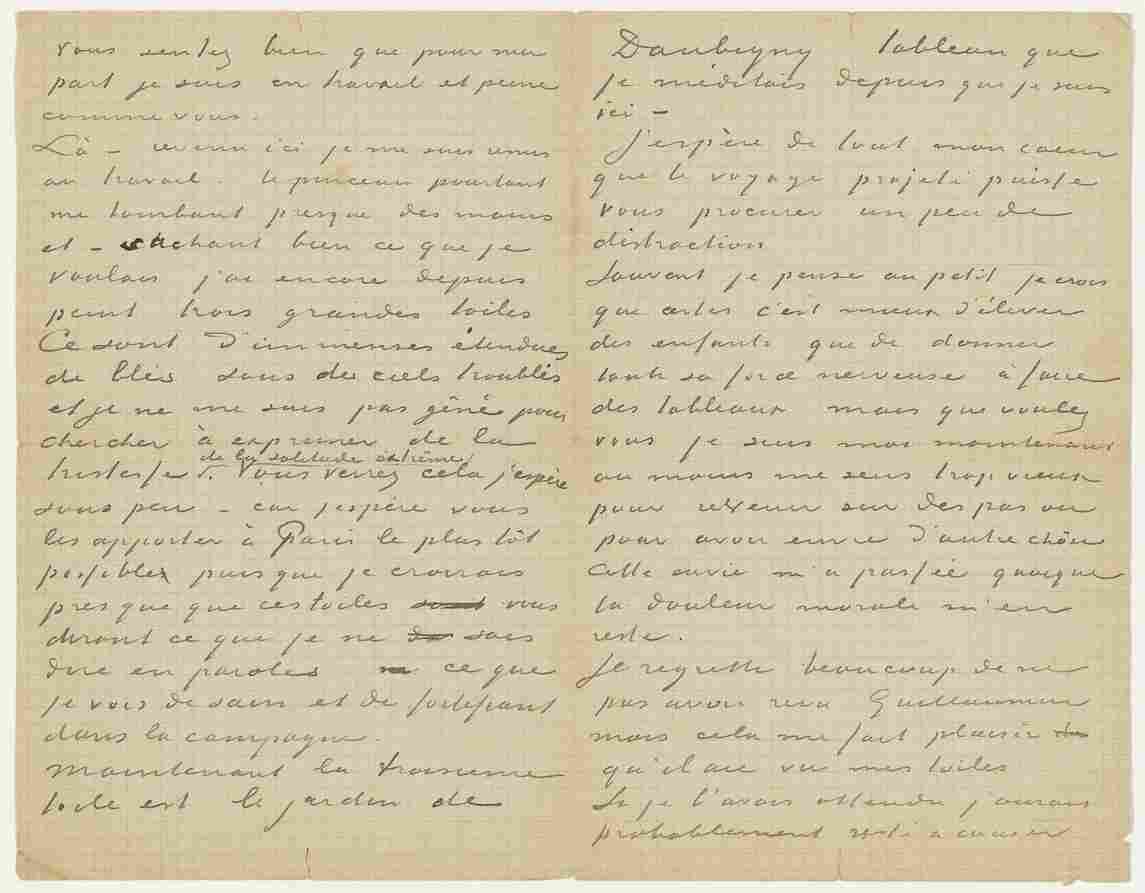 vous sentez bien que pour ma
part je suis en travail et peine
comme vous.
Là – revenu ici je me suis remis
au travail. le pinceau pourtant
me tombant presque des mains
et – sachant bien ce que je
voulais j'ai encore depuis
peint trois grandes toiles
Ce sont d'immenses étendues
de blés sous des ciels troublés
et je ne me suis pas gêné pour
chercher à exprimer de la
de la solitude extrême
tristesse. Vous verrez cela j'espère
sous peu – car j'espère vous
les apporter à Paris le plus tôt
possible puisque je croirais
presque que ces toiles vous
diront ce que je ne sais
dire en paroles ce que
je vois de sain et de fortifiant
dans la campagne.
Maintenant la troisieme
toile est le jardin de
Daubigny tableau que
je méditais depuis que je suis
ici –
J'espère de tout mon coeur
que le voyage projeté puisse
vous procurer un peu de
distraction
Souvent je pense au petit je crois
que certes c'est mieux d'élever
des enfants que de donner
toute sa force nerveuse à faire
des tableaux mais que voulez
vous je suis moi maintenant
au moins me sens trop vieux
pour revenir sur des pas ou
pour avoir envie d'autre chose
Cette envie m'a passée quoique
la douleur morale m'en
reste.
Je regrette beaucoup de ne
pas avoir revu Guillaumin
mais cela me fait plaisir
qu'il aie vu mes toiles
Si je l'avais attendu j'aurais
probablement resté a causer